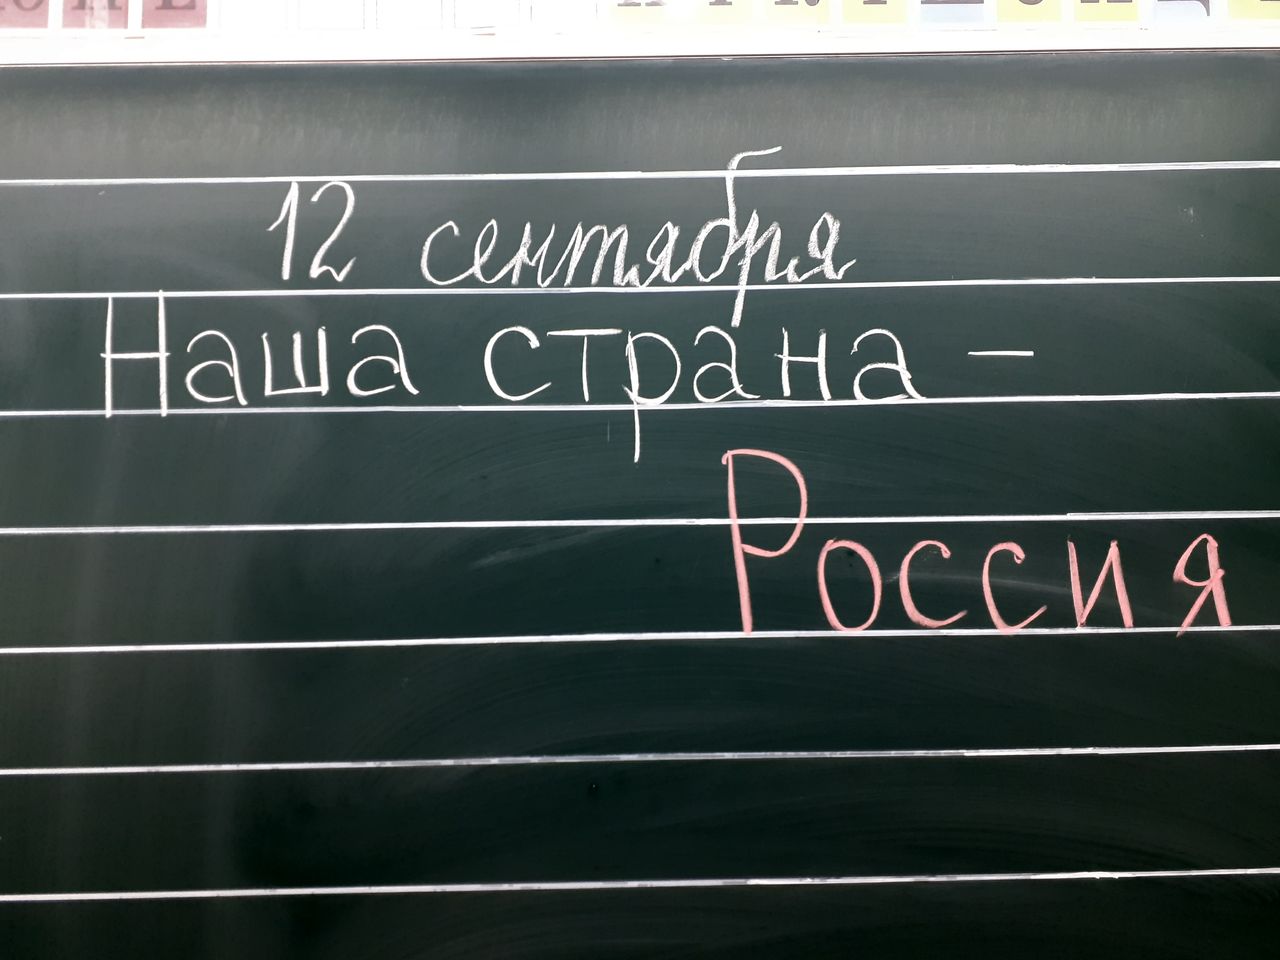 12 сентября
Наша страна –
Россия